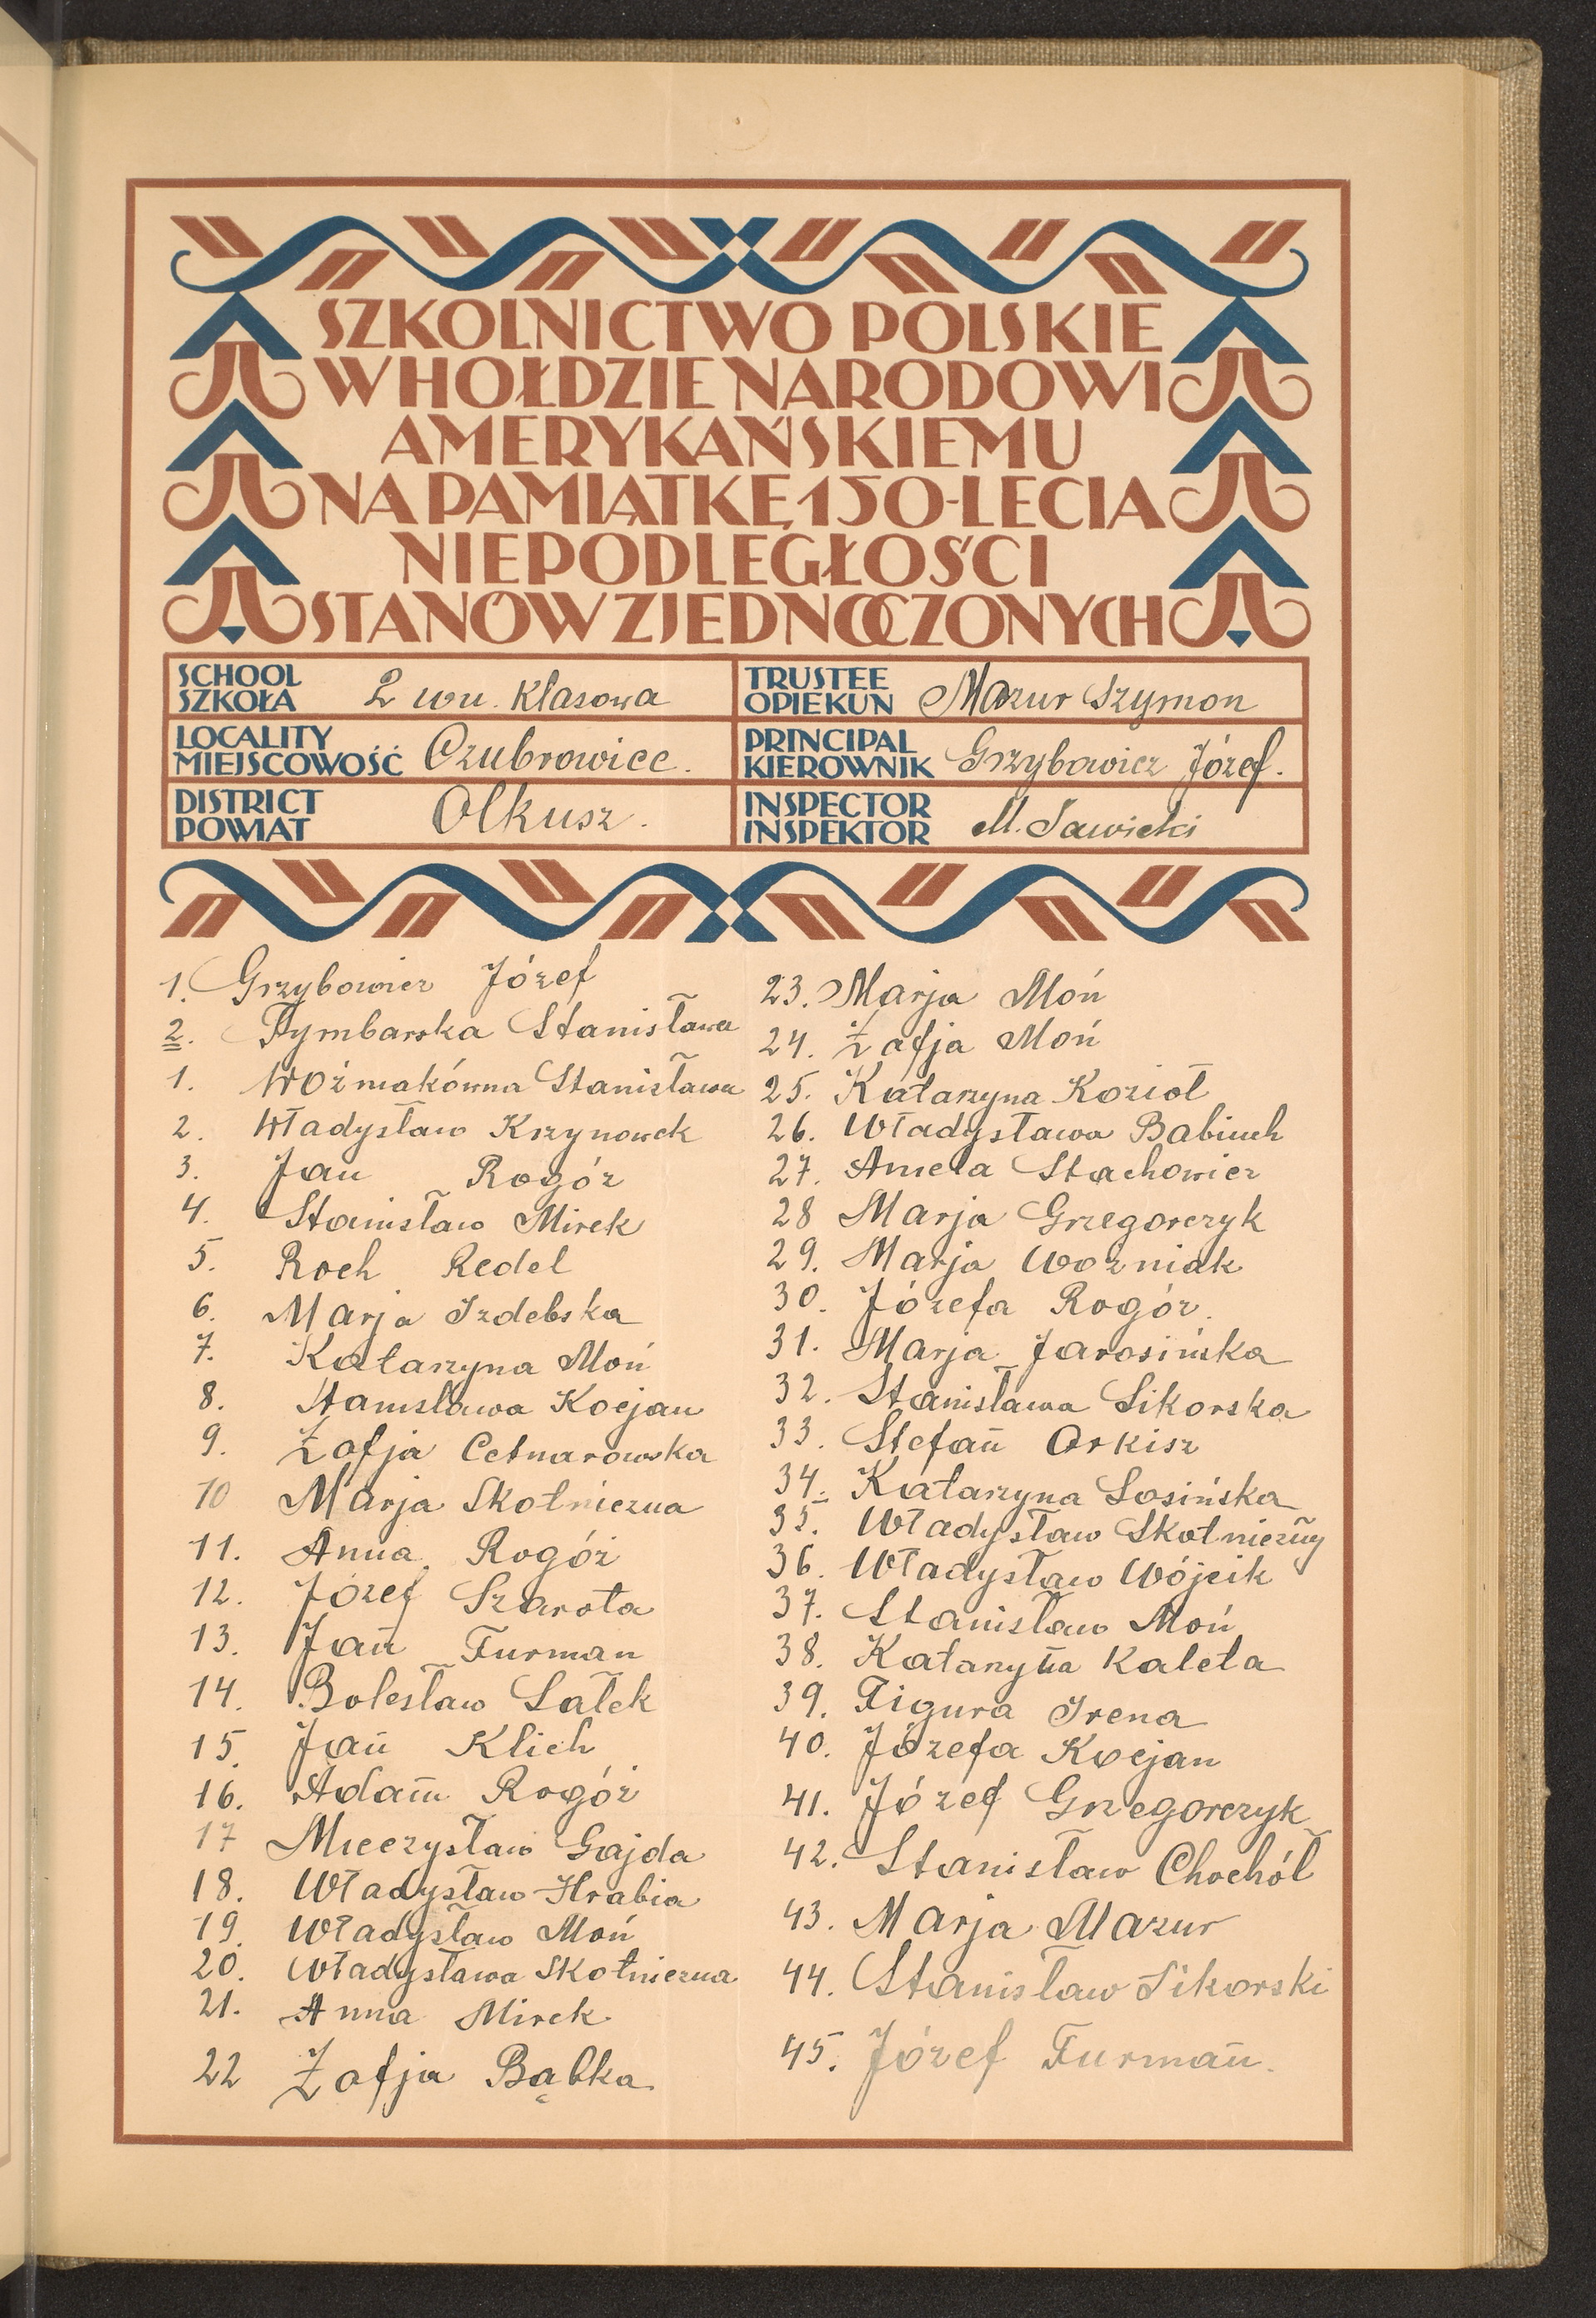 SZKOLNICTWO POLSKIE
W HOŁDZIE NARODOWI
AMERYKAŃSKIEMU
NA PAMIĄTKĘ 150-LECIA
NIEPODLEGŁOŚCI
STANÓW ZJEDNOCZONYCH
SCHOOL
SZKOŁA 2 wu. Klasowa
TRUSTEE
OPIEKUN Mazur Szymon
LOCALITY
MIEJSCOWOŚĆ Czubrowice.
PRINCIPAL
KIEROWNIK Grzybowicz Józef.
DISTRICT
POWIAT Olkusz.
INSPECTOR
INSPEKTOR M. Sawicki
1. Grzybowicz Józef
2. Tymbarska Stanisława
1. Woźniakówna Stanisława
2. Władysław Krzynowek
3. Jan Rogóż
4. Stanisław Mirek
5. Roch Redel
6. Marja Izdebska
7. Katarzyna Moń
8. Stanisława Kocjan
9. Zofja Cetnarowska
10 Marja Skotniczna
11. Anna Rogóż
12. Józef Szarota
13. Jan Furman
14. Bolesław Sałek
15. Jan Klich
16. Adam Rogóż
17 Mieczysław Gajda
18. Władysław Hrabia
19. Władysław Moń
20. Władysława Skotniczna
21. Anna Mirek
22 Zofja Bąbka
23. Marja Moń
24. Zofja Moń
25. Katarzyna Kozioł
26. Władysława Babiuch
27. Aniela Stachowicz
28 Marja Grzegorczyk
29. Marja Woźniak
30. Józefa Rogóż.
31. Marja Jarosińska
32. Stanisława Sikorska
33. Stefan Orkisz
34. Katarzyna Łosińska
35. Władysław Skotniczny
36. Władysław Wójcik
37. Stanisław Moń
38. Katarzyna Kaleta
39. Figura Irena
40. Józefa Kocjan
41. Józef Grzegorczyk
42. Stanisław Chochół
43. Marja Mazur
44. Stanisław Sikorski
45. Józef Furman.